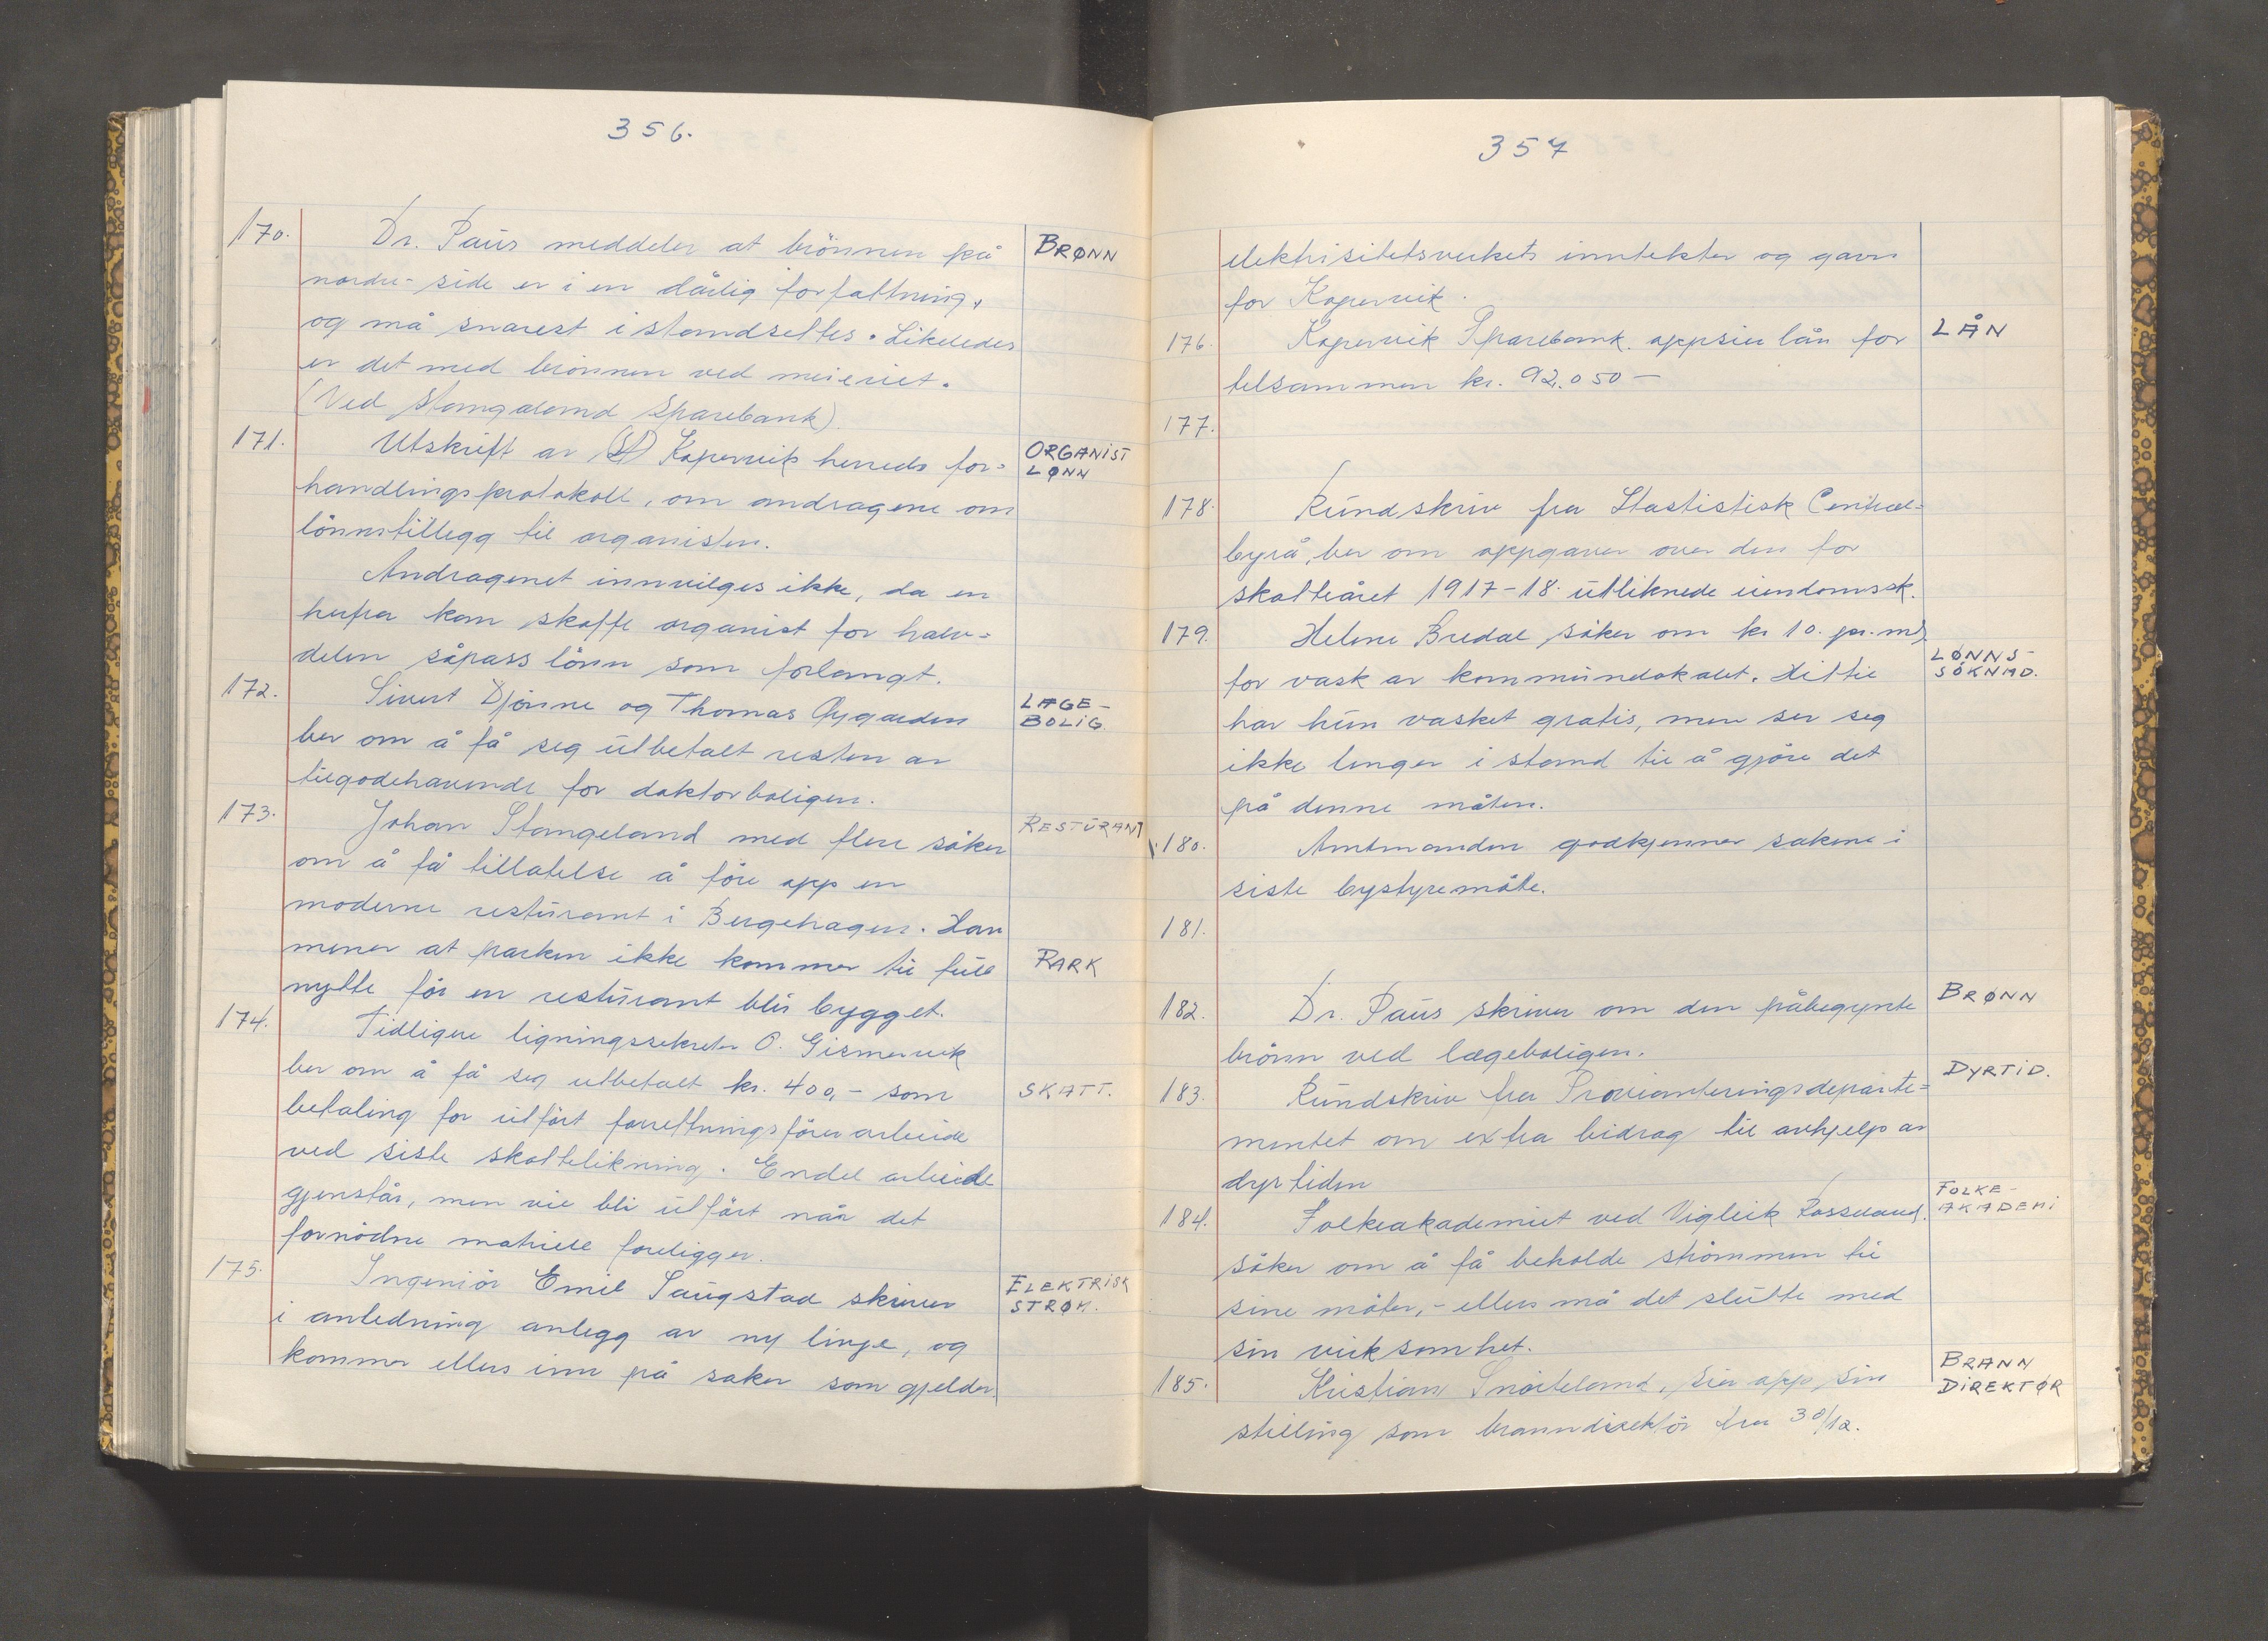 356.
170. Dr. Paus meddeler at brönnen på BRØNN
nordre-side er i en dårlig forfattning,
og må snarest i standsettes. Likeledes
er det med brönnen ved meieriet.
(Ved Stangeland Sparebank).
171. Utskrift av (St) Kopervik herreds for= ORGANIST
LØNN
handlingsprotokoll, om andragene om
lönnstillegg til organisten.
Andragenet innvilges ikke, da en
herfra kan skaffe organist for halv=
delen såpass lönn som forlangt.
172. Sivert Djönne og Thomas Øygarden LÆGE-
BOLIG.
ber om å få seg utbetalt resten av
tilgodehavende for doktorboligen.
173. Johan Stangeland med flere söker RESTURANT
om å få tillatelse å före opp en
moderne resturant i Bergehagen. Han
mener at parken ikke kommer til full PARK
nytte för en resturant blir bygget.
174. Tidligere ligningssekretær O. Gismervik
ber om å få seg utbetalt kr. 400,- som SKATT.
betaling for utfört forrettningsförer arbeide
ved siste skattelikning. Endel arbeide
gjenstår, men vil bli utfört når det
fornödne matriell foreligger.
175. Ingeniör Emil Saugstad skriver ELEKTRISK
STRØM.
i anledning anlegg av ny linje, og
kommer ellers inn på saker som gjelder
357
elektrisitetsverkets inntekter og gavn
for Kopervik.
176. Kopervik Sparebank. oppsier lån for LÅN
tilsammen kr. 92.050 –
177.
178. Rundskriv fra Stastistisk Central=
byrå, ber om oppgaver over den for
skatteåret 1917-18. utliknede eiendomssk.
179. Helene Bredal söker om kr 10. pr. md,
LØNNS-
SØKNAD.
for vask av kommunelokalet. Hittil
har hun vasket gratis, men ser seg
ikke lenger i stand til å gjöre det
på denne måten.
180. Amtmanden godkjenner sakene i
siste bystyremöte.
181.
182. Dr. Paus skriver om den påbegynte BRØNN
brönn ved lægeboligen.
183. Rundskriv fra Provianteringsdeparte= DYRTID.
mentet om extra bidrag til avhjelp av
dyrtiden
184. Folkeakademiet ved Vigleik FOLKE-
AKADEMI
söker om å få beholde strömmen til
sine möter, - ellers må det slutte med
sin virksomhet.
185. Kristian Snörteland, sier opp sin BRANN
DIREKTØR
stilling som branndirektör fra 30/12.